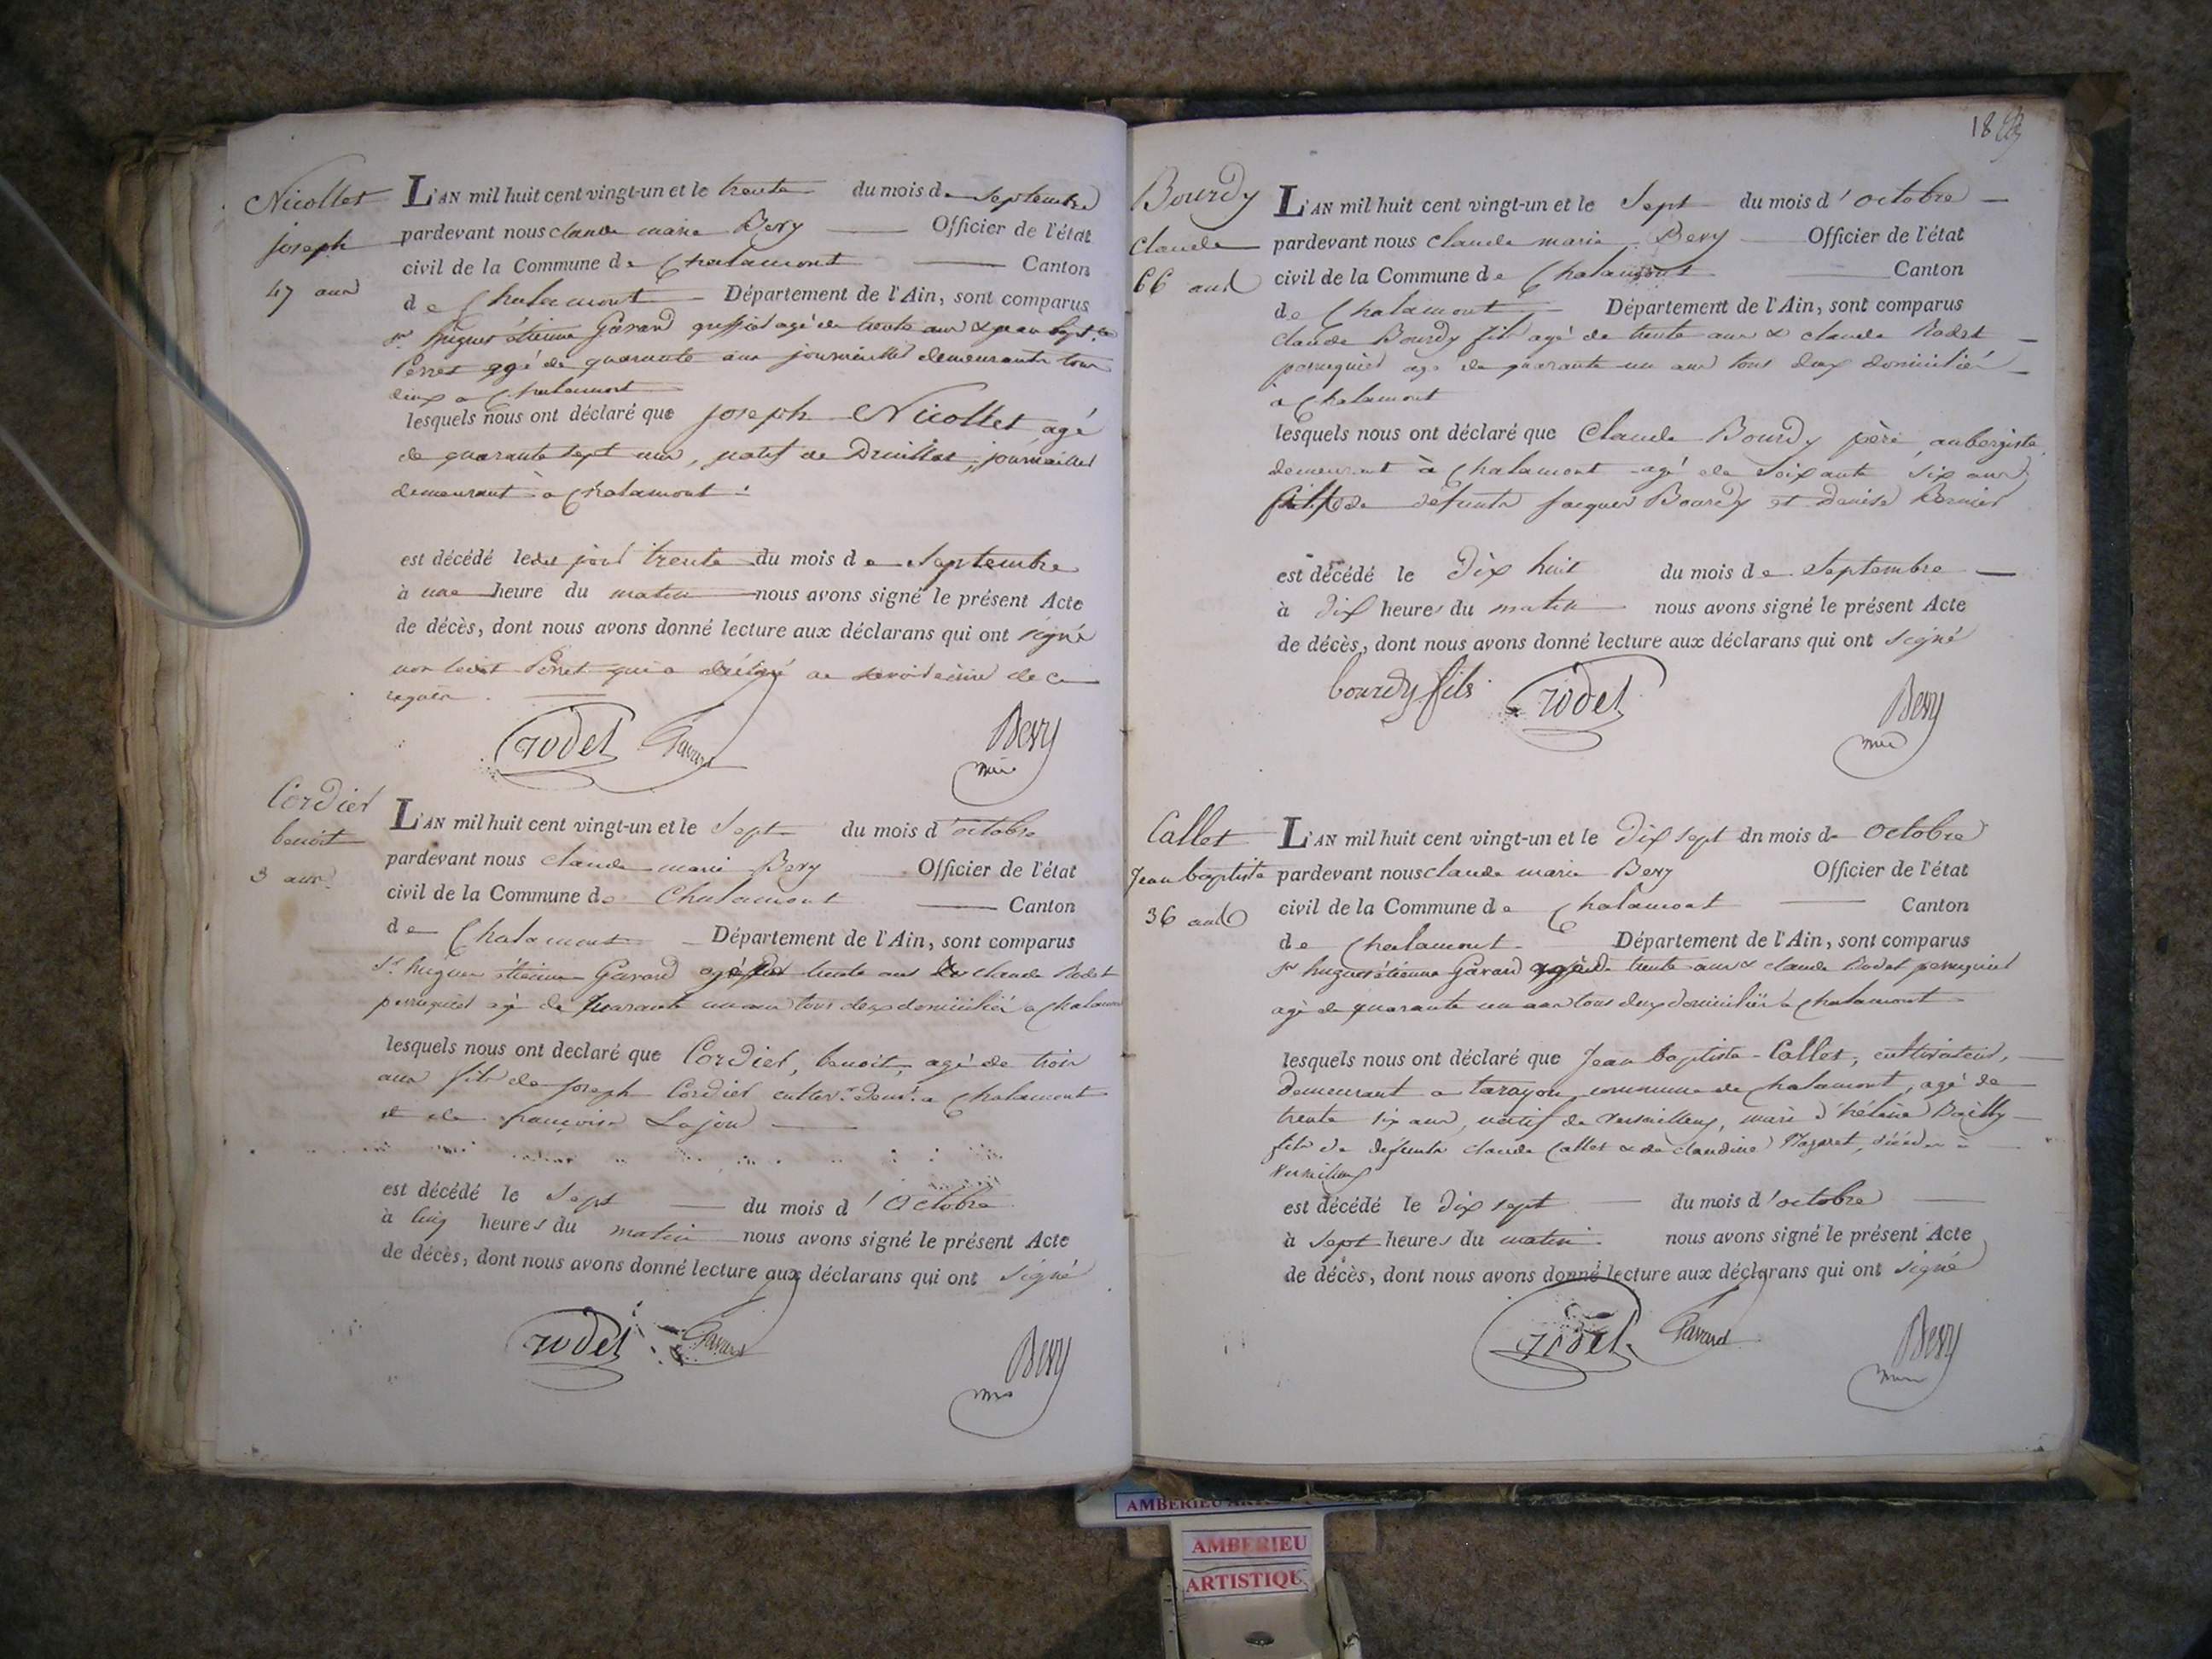 Nicollet
joseph
47 ans
L'AN mil huit cent vingt-un et le trente du mois de Septembre
pardevant nous claude marie Bery Officier de l'état
civil de la Commune de Chalamont Canton
de Chalamont Département de l'Ain, sont comparus
sr hugues étienne Gavard agé de trente ans & jean
Perret agé de quarante ans journaillier demeurants tous
deux a Chalamont
lesquels nous ont déclaré que joseph Nicollet agé
de quarante sept ans, natif de Druillat, journaillier
demeurant à Chalamont
est décédé le dit jour trente du mois de Septembre
à une heure du matin nous avons signé le présent Acte
de décès, dont nous avons donné lecture aux déclarans qui ont signé
non ledit Perret qui a déclaré ne savoir écrire de ce
requis.
rodet Gavard Bery
Cordier
benoit
3 ans
L'AN mil huit cent vingt-un et le Sept du mois d'octobre
pardevant nous claude marie Bery Officier de l'état
civil de la Commune de Chalamont Canton
de Chalamont Département de l'Ain, sont comparus
sr hugues étienne Gavard agé de trente ans & claude Rodet
perruquier agé de quarante un ans tous deux domiciliés a Chalamont
lesquels nous ont declaré que Cordier, benoit, agé de trois
ans fils de joseph Cordier demt a Chalamont
et de françoise Lajon
est décédé le Sept du mois d'Octobre
à cinq heures du matin nous avons signé le présent Acte
de décès, dont nous avons donné lecture aux déclarans qui ont signé
rodet Gavard Bery
18
Bourdy
Claude
66 ans
L'AN mil huit cent vingt-un et le Sept du mois d'octobre
pardevant nous claude marie Bery Officier de l'état
civil de la Commune de Chalamont Canton
de Chalamont Département de l'Ain, sont comparus
claude Bourdy fils agé de trente ans & claude Rodet
perruquier agé de quarante un ans tous deux domiciliés
a Chalamont
lesquels nous ont déclaré que Claude Bourdy père, aubergiste
demeurant à Chalamont agé de Soixante Six ans
fils de defunts jacques Bourdy et Denise Bernier
est décédé le Dix huit du mois de Septembre
à dix heures du matin nous avons signé le présent Acte
de décès, dont nous avons donné lecture aux déclarans qui ont signé
bourdy fils rodet Bery
Callet
Jean baptiste
36 ans
L'AN mil huit cent vingt-un et le Dix sept du mois de Octobre
pardevant nous claude marie Bery Officier de l'état
civil de la Commune de Chalamont Canton
de Chalamont Département de l'Ain, sont comparus
sr hugues étienne Gavard agé de trente ans & claude Rodet perruquier
agé de quarante un ans tous deux domiciliés a Chalamont
lesquels nous ont déclaré que Jean baptiste Callet, cultivateur,
demeurant a tarayon commune de Chalamont, agé de
trente six ans, natif de Versailleux, mari d'hélène Bailly
fils de défunts claude Callet & de claudine Mazaret, décédés à
Versailleux
est décédé le Dix sept du mois d'octobre
à sept heures du matin nous avons signé le présent Acte
de décès, dont nous avons donné lecture aux déclarans qui ont signé
rodet Gavard Bery
AMBERIEU
AMBERIEU
ARTISTIQU